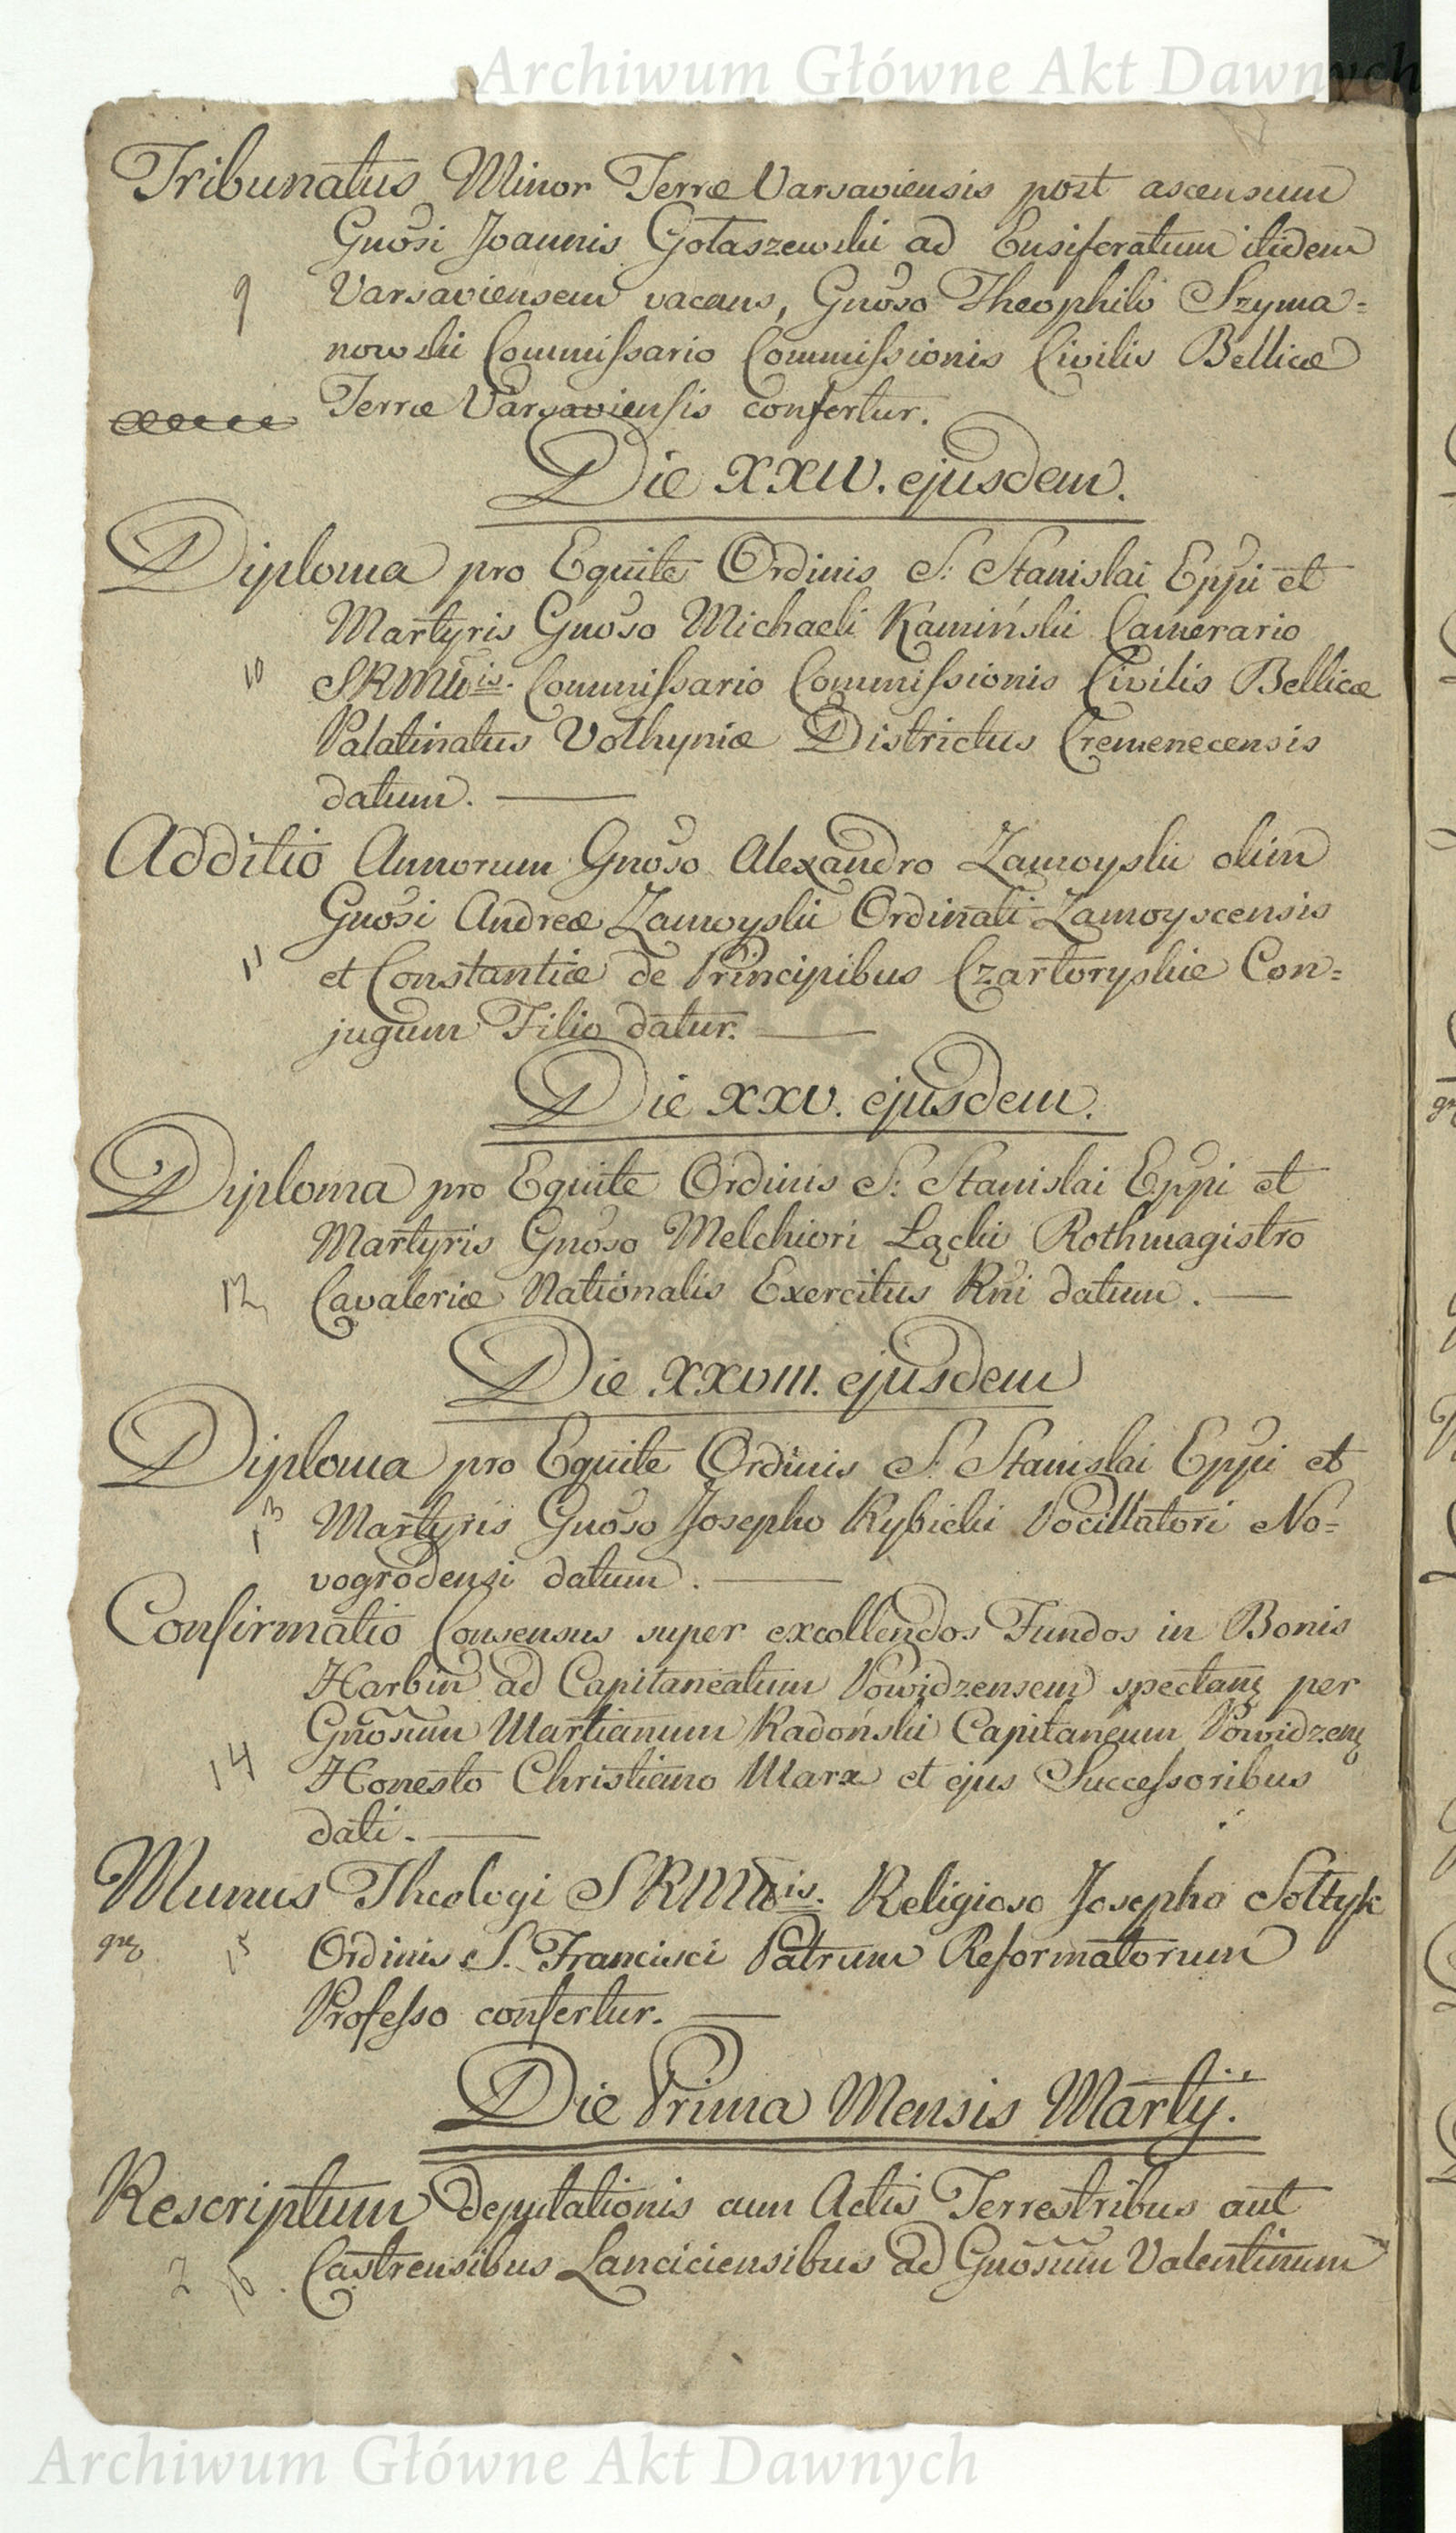 Archiwum Główne Akt Dawnych
Tribunatus Minor Terræ Varsaviensis post ascensum
Gnosi Joannis Gołaszewski ad Ensiferatum itidem
9 Varsaviensem vacans, Gnoso Theophilo Szyma=
nowski Commissario Commissionis Civilis Bellicæ
Terræ Varsaviensis confertur.
Die XXIV. ejusdem.
Diploma pro Equite Ordinis S: Stanislai Eppi et
Martyris Gnoso Michaeli Kamiński Camerario
10 SRMttis. Commissario Commissionis Civilis Bellicæ
Palatinatus Volhyniæ Districtus Cremenecensis
datum.
Additio Annorum Gnoso Alexandro Zamoyski olim
Gnosi Andreæ Zamoyski Ordinati Zamoyscensis
11 et Constantiæ de Principibus Czartoryskie Con=
jugum Filio datur.
Die XXV. ejusdem.
Diploma pro Equite Ordinis S: Stanislai Eppi et
Martyris Gnoso Melchiori Łącki Rothmagistro
12 Cavaleriæ Nationalis Exercitus Rni datum.
Die XXVIII. ejusdem
Diploma pro Equite Ordinis S. Stanislai Eppi et
13 Martyris Gnoso Josepho Rybicki Pocillatori No=
vogrodensi datum.
Confirmatio Consensus super excollendos Fundos in Bonis
Harbin ad Capitaneatum Powidzensem spectanz per
Gnosum Martianum Radoński Capitaneum Powidzenz
14 Honesto Christiano Marx et ejus Successoribus
dati.
Munus Theologi SRMttis. Religioso Josepho Sołtyk
15 Ordinis S. Francisci Patrum Reformatorum
Professo confertur.
Die Prima Mensis Martij.
Rescriptum Deputationis cum Actis Terrestribus aut
16. Castrensibus Lanciciensibus ad Gnosum Valentinum
Archiwum Główne Akt Dawnych